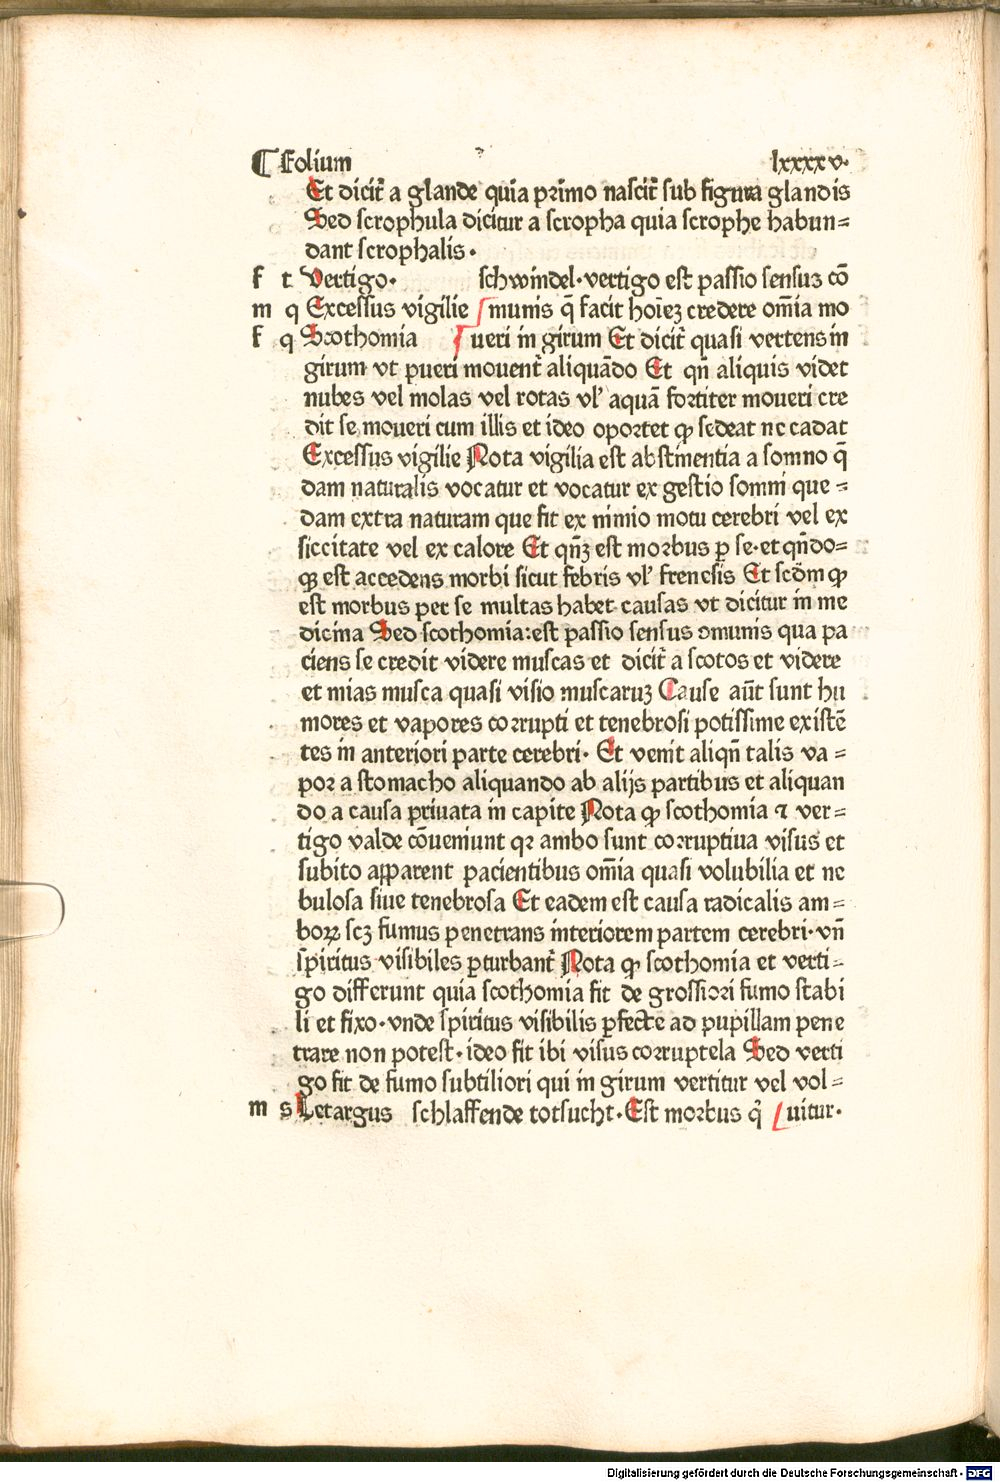 ¶ Folium lxxxxv.
Et dicit̄ a glande quia primo nascit̄ sub figura glandis
Sed scrophula dicitur a scropha quia scrophe habun=
dant scrophalis.
f t Vertigo. schwindel. vertigo est passio sensuꝫ cō
m q Excessus vigilie munis q̄ facit hoīeꝫ credere om̄ia mo
f q Scothomia ueri in girum Et dicit̄ quasi vertens in
girum vt pueri mouent̄ aliquādo Et qn̄ aliquis videt
nubes vel molas vel rotas vl' aquā fortiter moueri cre
dit se moueri cum illis et ideo oportet ꝙ sedeat ne cadat
Excessus vigilie Nota vigilia est abstinentia a somno q̄
dam naturalis vocatur et vocatur ex gestio somni que =
dam extra naturam que fit ex nimio motu cerebri vel ex
siccitate vel ex calore Et qn̄ꝫ est morbus ꝑ se. et qn̄do=
ꝙ est accedens morbi sicut febris vl' frenesis Et scd̄m ꝙ
est morbus per se multas habet causas vt dicitur in me
dicina Sed scothomia: est passio sensus ꝯmunis qua pa
ciens se credit videre muscas et dicit̄ a scotos et videre
et mias musca quasi visio muscaruꝫ Cause aūt sunt hu
mores et vapores corrupti et tenebrosi potissime existē
tes in anteriori parte cerebri. Et venit aliqn̄ talis va =
por a stomacho aliquando ab alijs partibus et aliquan
do a causa priuata in capite Nota ꝙ scothomia ⁊ ver=
tigo valde cōueniunt qꝛ ambo sunt corruptiua visus et
subito apparent pacientibus om̄ia quasi volubilia et ne
bulosa siue tenebrosa Et eadem est causa radicalis am=
boꝝ scꝫ fumus penetrans interiorem partem cerebri. vn̄
spiritus visibiles ꝑturbant̄ Nota ꝙ scothomia et verti=
go differunt quia scothomia fit de grossiori fumo stabi
li et fixo. vnde spiritus visibilis ꝑfecte ad pupillam pene
trare non potest. ideo fit ibi visus corruptela Sed verti
go fit de fumo subtiliori qui in girum vertitur vel vol=
m s Letargus schlaffende totsucht. Est morbus q̄ uitur.
Digitalisierung gefördert durch die Deutsche Forschungsgemeinschaft - DFG